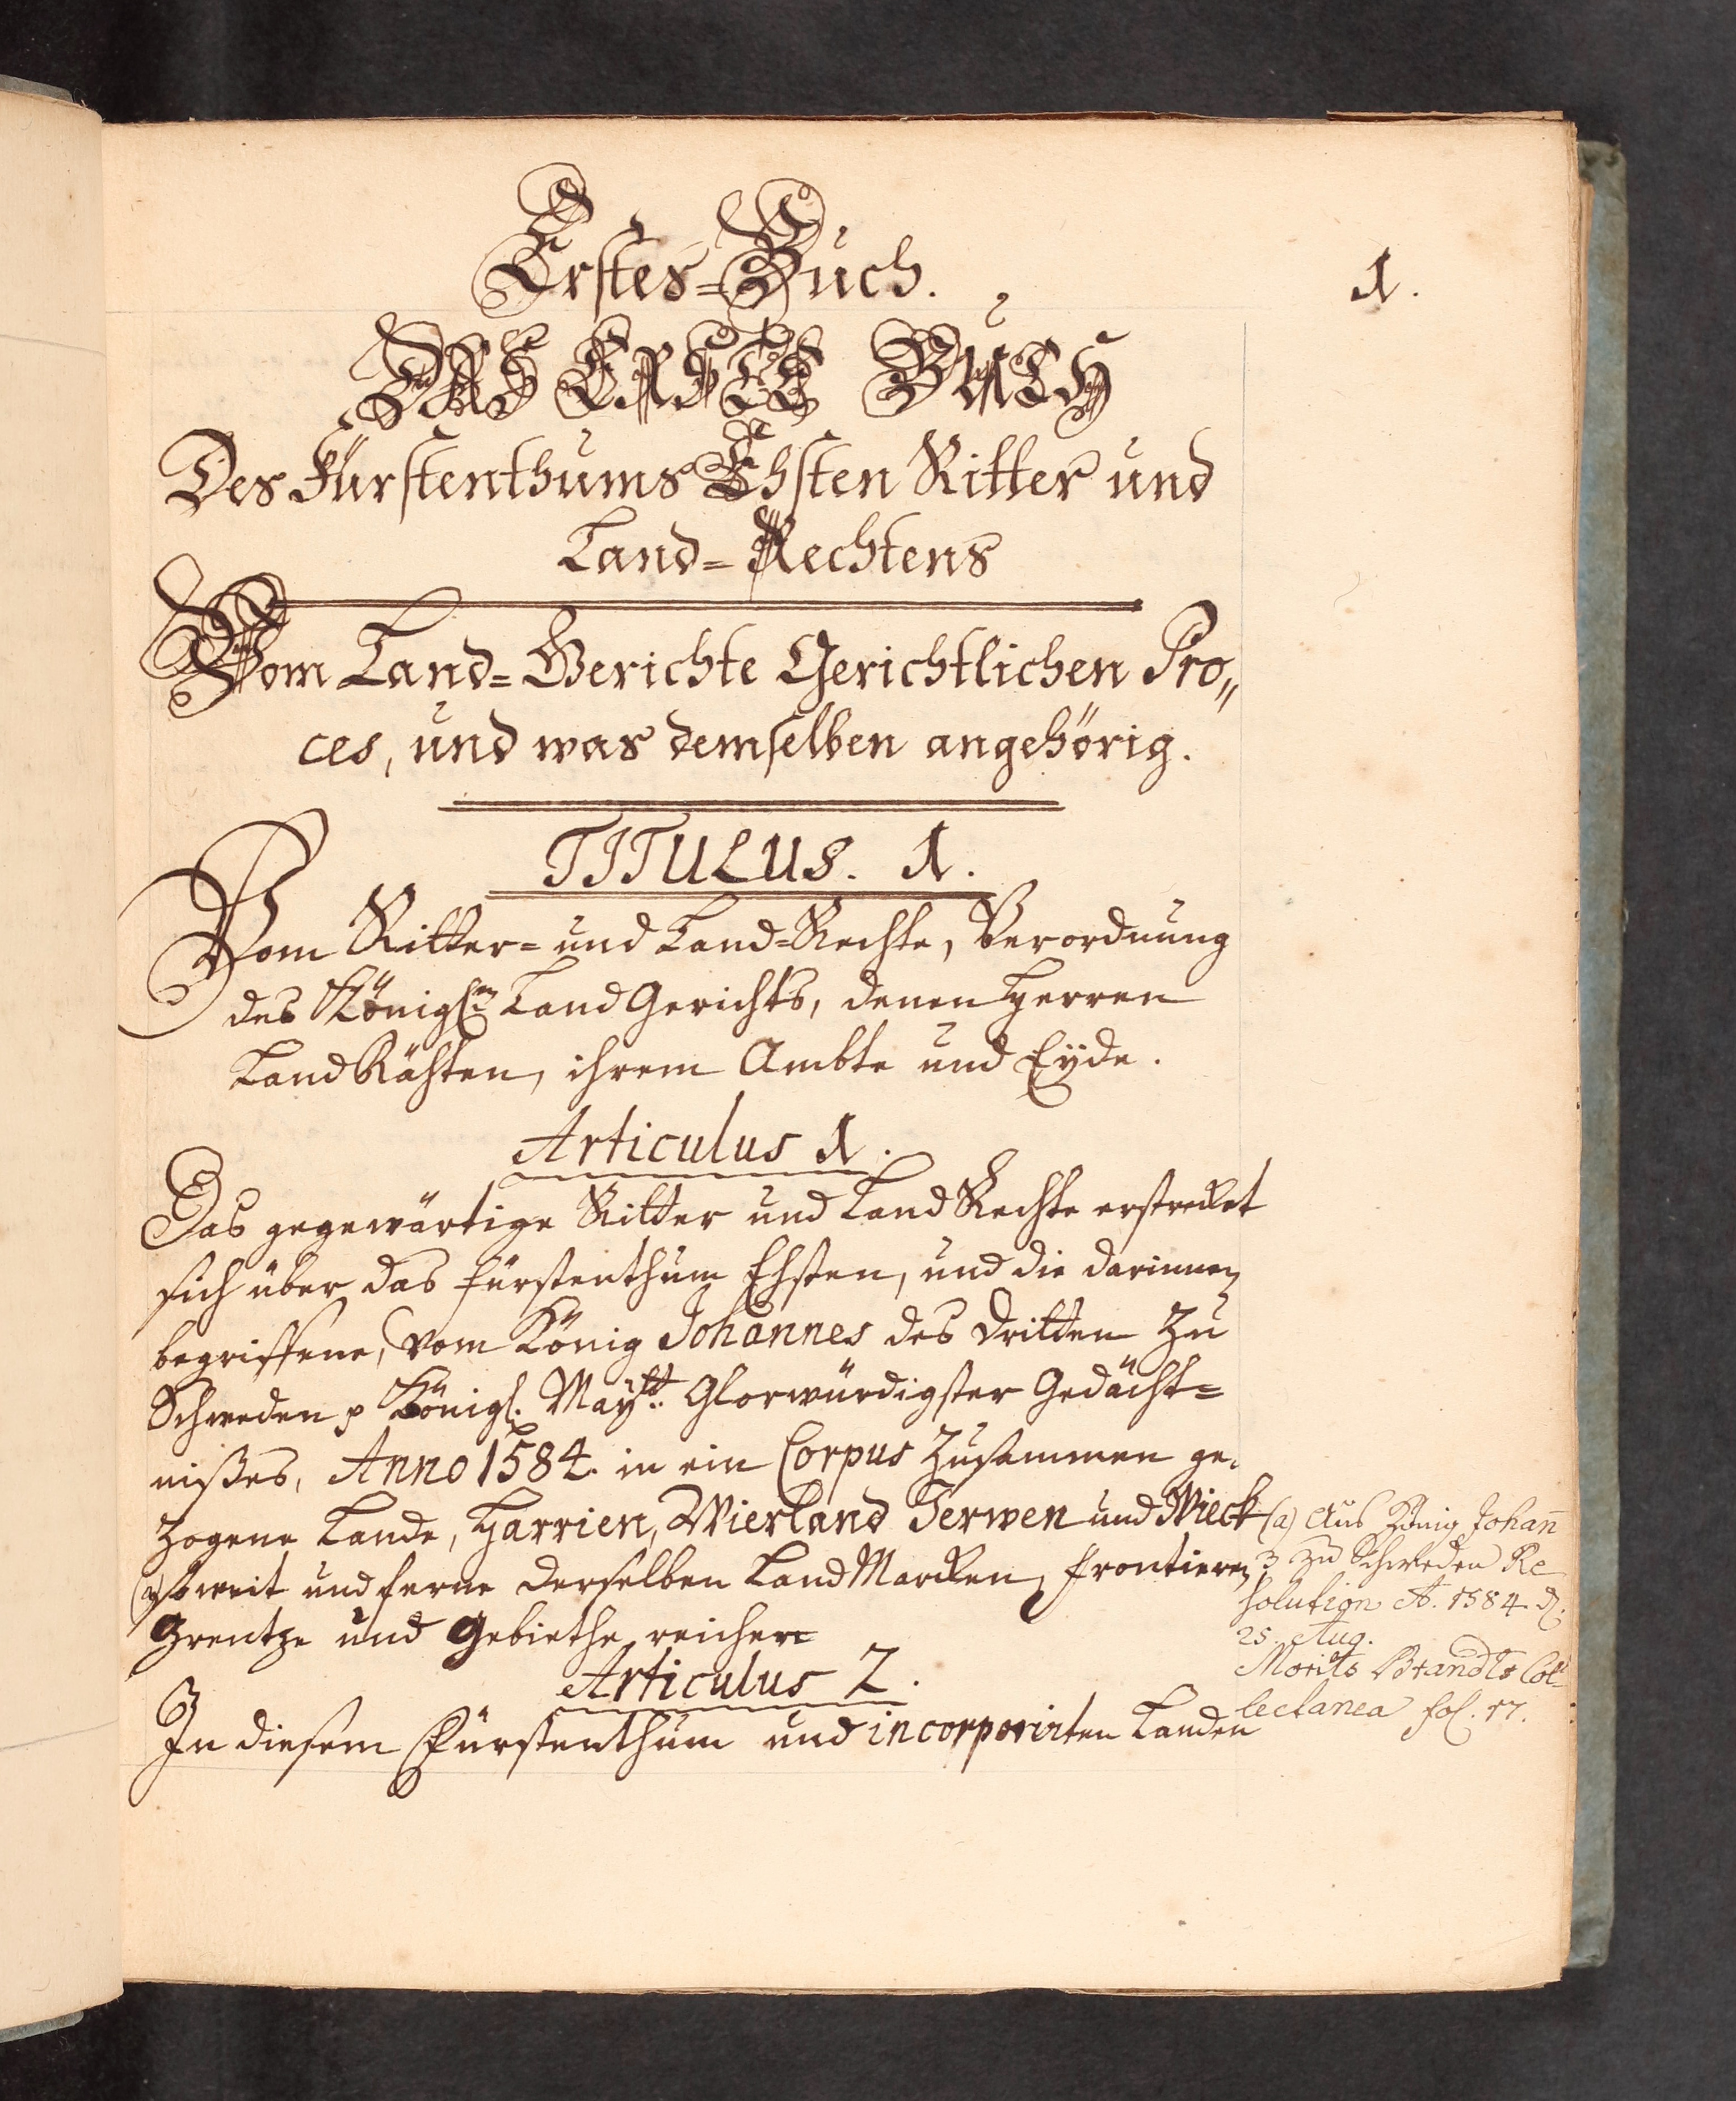 Erstes-Buch.
1.
DAS ERSTE BUCH
Des Fürstenthums Ehsten Ritter und
Land-Rechtens
Vom Land-Gerichte Gerichtlichen Pro„
ces, und was demselben angehörig.
TITULUS. 1.
Vom Ritter- und Land-Rechte, Verordnung
des Königl. Land Gerichts, denen Herren
Land Rähten, ihrem Ambte und Eyde.
Articulus 1.
Das gegewärtige Ritter und Land Rechte erstrecket
sich über das fürstenthum Ehsten, und die darinnen
begriffene, vom König Johannes des Dritten zu
Schweden p Königl. Maytt: Glorwürdigster Gedächt-
nißes, Anno 1584. in ein Corpus zusammen ge-
zogene Lande, Harrien, Wierland Jerwen und Wieck
(a) so weit und ferne derselben Land Marcken, frontieren
grentze und gebiethe reichen
Articulus 2.
In diesem Fürstenthum und incorporirten Landen
(a) Aus König Johan̅
3 zu Schweden Re
solution A. 1584. d.
25. Aug.
Morits Brandts Col-
lectanea fol. 17.